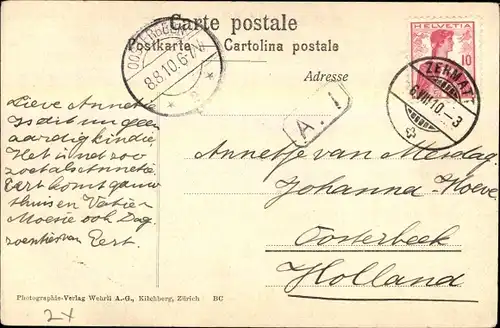 Carte postale
Postkarte Cartolina postale
Adresse
HELVETIA
10
OOSTERBEEK
8.8.10.6-7 N
ZERMATT
6.VIII.10.-3
A. 1
Lieve Annetie
Is dit nu geen
aardig kindje
Het is net zoo
zoet als Annetie.
Eert komt gauw
thuis en Vatie en
Moesie ook. Dag
zoentjes van Eert.
Annetje van Mesdag.
Johanna-Hoeve
Oosterbeek
Holland
Photographie-Verlag Wehrli A.-G., Kilchberg, Zürich BC
2x